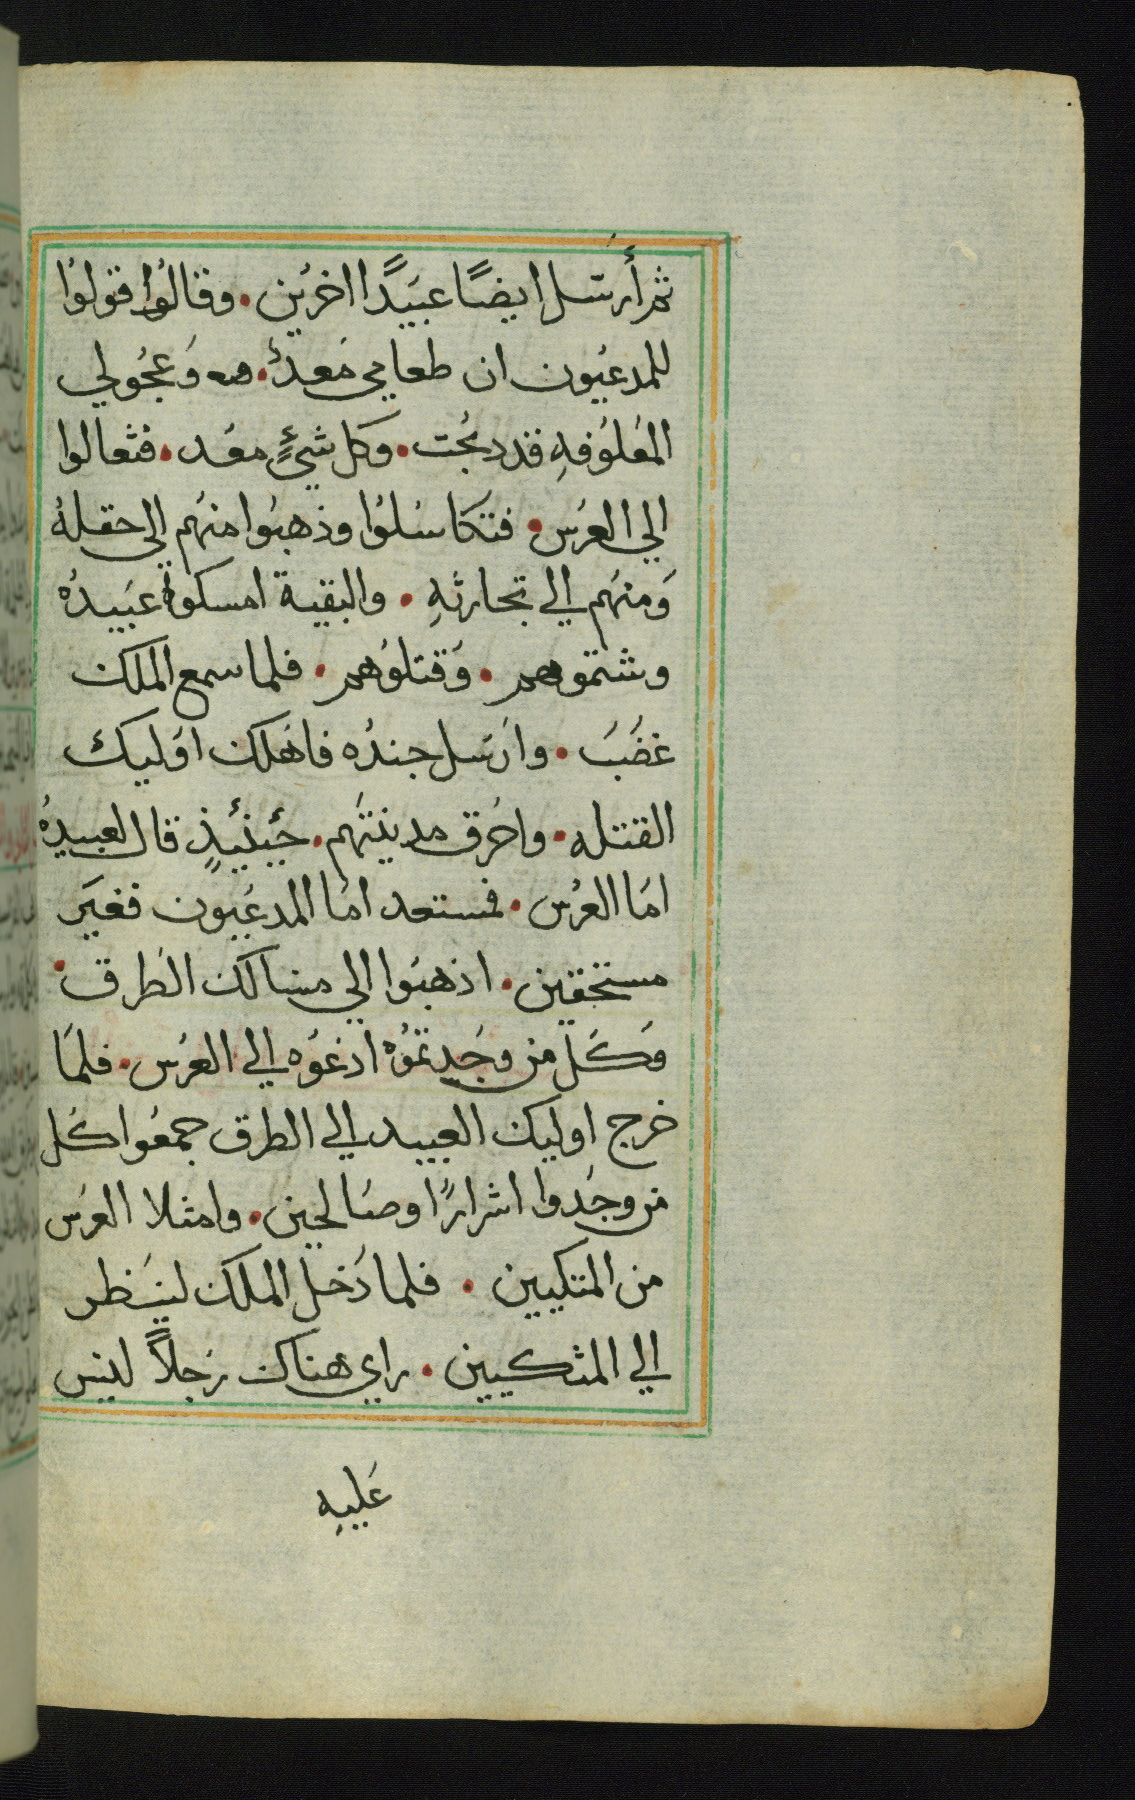 ثم أرسل ايضًا عبيدًا اخرين • وقالوا قولوا
للمدعيون ان طعامي معدٌ • هه وعجولي
المعلوفهِ قد دبحت • وكل شيٍ معد • فتعالوا
الي العرس • فتكاسلوا وذهبوا منهم الي حقلهُ
ومنهم الي تجارتهِ • والبقية امسكوا عبيدهُ
وشتموهم • وقتلوهم • فلما سمع الملك
غضبَ • وارسل جنده فاهلك اوليك
القتله • واحرق مدينتهم • حئنئذٍ قال لعبيدهُ
اما العرس • فمستعد اما المدعيون فغير
مستحقين • اذهبوا الي مسالك الطرق •
وكل من وجدتموه ادعوه الي العرس • فلما
خرج اوليك العبيد الي الطرق جمعوا كل
من وجدوا اشرارًا وصالحين • وامتلا العرس
من المتكيين • فلما دخل الملك لينظر
الي المتكيين • راي هناك رجلاً ليس
عليهِ